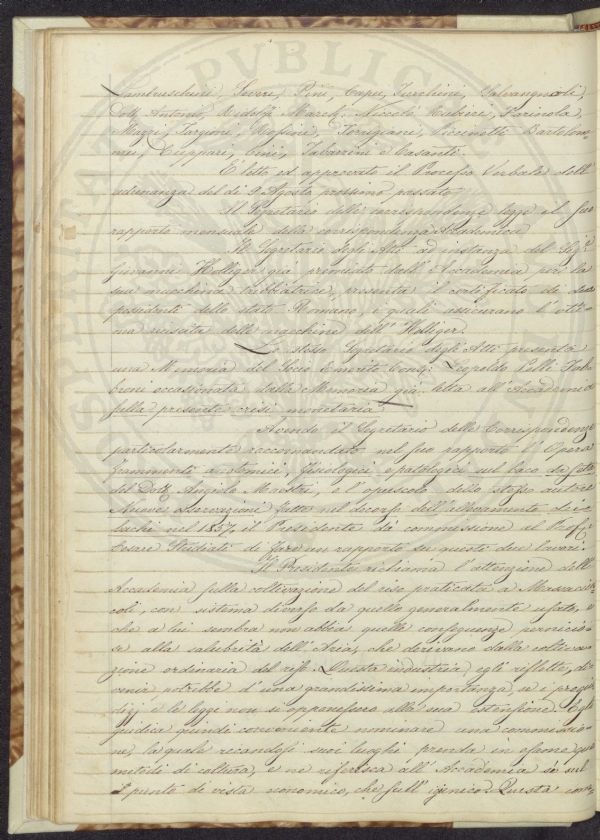 Lambruschini, Serri, Pini, Capei, Turchini, Salvangnoli,
Dott. Antonio, Ridolfi March. Niccolò, Cubieri, Farinola,
Mazzi, Targioni, Rossini, Torrigiani, Vecinetti, Bartolom=
mei, Cuppari, Cini, Tabarrini e Casanti.
È letto ed approvato il Processo Verbale dell'
adunanza del dì 9 Agosto prossimo passato.
Il Segretario delle corrispondenze legge il suo
rapporto mensuale della corrispondenza Accademica
Il Segretario degli Atti ad instanza del Sig.e
Giovanni Holliger già premiato dall'Accademia per la
sua macchina trebbiatrice, presenta il certificato di due
possidenti dello stato Romano, i quali assicurano l'otti=
ma riuscita delle macchine dell'Holliger.
Lo stesso Segretario degli Atti presenta
una Memoria del Socio Emerito Consig. Leopoldo Pelli Fab=
broni occasionata dalla Memoria già letta all'Accademia
sulla presente crisi monetaria.
Avendo il Segretario delle Corrispondenze
particolarmente raccomandato nel suo rapporto l'Opera
frammenti anatomici, fisiologici e patologici sul baco da seta
del Dott. Angelo Maestri, e l'opuscolo dello stesso autore
Nuove osservazioni fatte nel decorso dell'allevamento dei
bachi nel 1857, il Presidente dà commissione al Prof.
Cesare Studiati di fare un rapporto su questi due lavori.
Il Presidente richiama l'attenzione dell'
Accademia sulla coltivazione del riso praticata a Massaciuc=
coli, con sistema diverso da quello generalmente usato, e
che a lui sembra non abbia quelle conseguenze pernicio=
se alla salubrità dell'Aria, che derivano dalla coltiva=
zione ordinaria del riso. Questa industria, egli riflette, di=
venir potrebbe d'una grandissima importanza, se i pregiu=
dizj e le leggi non si opponessero alla sua estensione. Egli
giudica quindi conveniente nominare una commissio=
ne, la quale recandosi sui luoghi prenda in esame quei
metodi di coltura, e ne riferisca all'Accademia sì sul
punto di vista economico, che sull'igienico. Questa com=